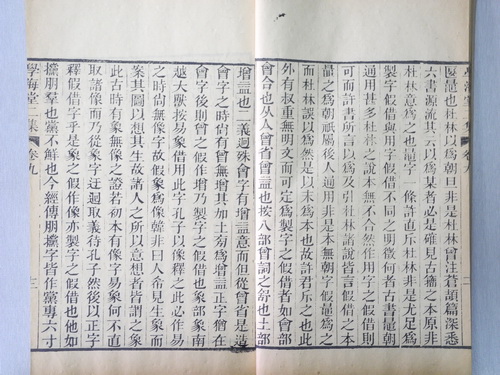 匽鼂也杜林以爲朝旦非是杜林曾注蒼頡篇深悉
六書源流其云以爲某者必是確見古籀之本原非
杜林意爲之也鼂字一條許直斥杜林非是尤足爲
製字假借與用字假借不同之明徵何者古書鼂朝
通用甚多杜林之說本無不合然作用字之假借則
可而許書所言以爲及引杜林諸說皆言假借之本
鼂之爲朝祇屬後人通用非是本無朝字假鼂爲之
而杜林誤以爲然是以末爲本也故許君斥之也此
外有叔重無明文而可定爲製字之假借者如會部
會合也从亼曾省曾益也按八部曾詞之舒也土部
增益也二義迥殊會字有增益意而但從曾省是造
會字之時尚有曾無增其如土菊爲增益正字猶在
會字後則曾之假作增乃製字之假借也象部象南
越大獸按易象借用此字孔子以像釋之此必作易
之時尚無像字故假象爲像韓非曰人希見生象而
案其圖以想其生故諸人之所以意想者皆謂之象
此古時有象無像之證若初本有像字易象何不直
取諸像而乃從象字迂迴取義待孔子然後以正字
釋假借字乎是象之假作像亦製字之假借也他如
攩朋羣也黨不鮮也經傳朋攩字皆作黨專六寸
學海堂二集 卷九 三